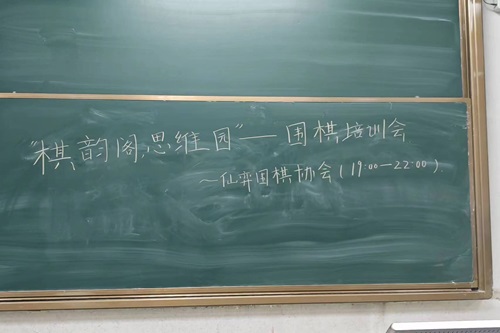 "棋韵阁,思维园"—围棋培训会
~仙弈围棋协会(19:00—22:00)